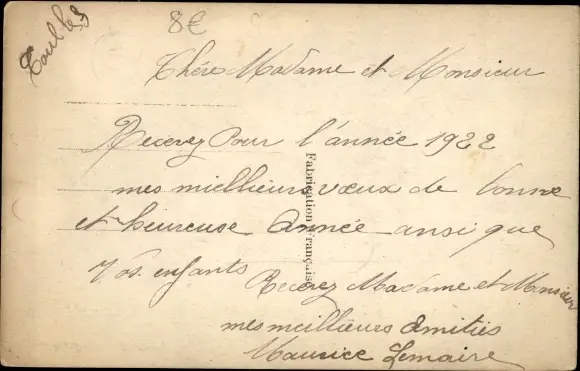 8€
Chére Madame et Monsieur
Recevez Pour l'année 1922
mes miellieurs vœux de bonne
et heureuse Année ansi que
Vos enfants
Recevez Madame et Monsieur
mes meillieurs Amitiés
Maurice Lemaire
Fabrication Française